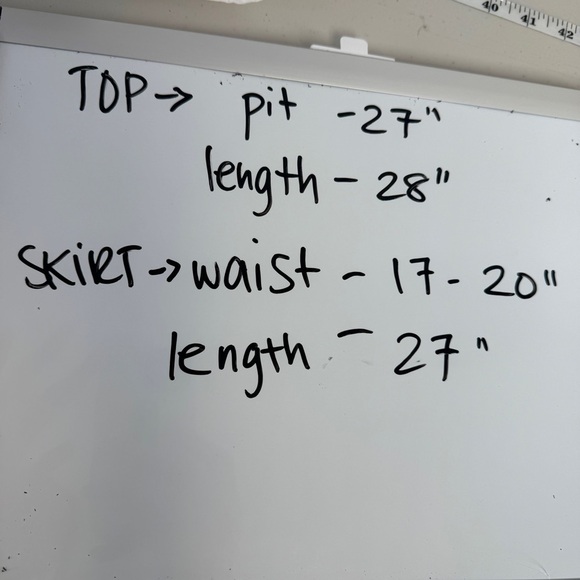 40 41 42
TOP → pit - 27"
length - 28"
SKiRT → waist - 17 - 20"
length - 27"